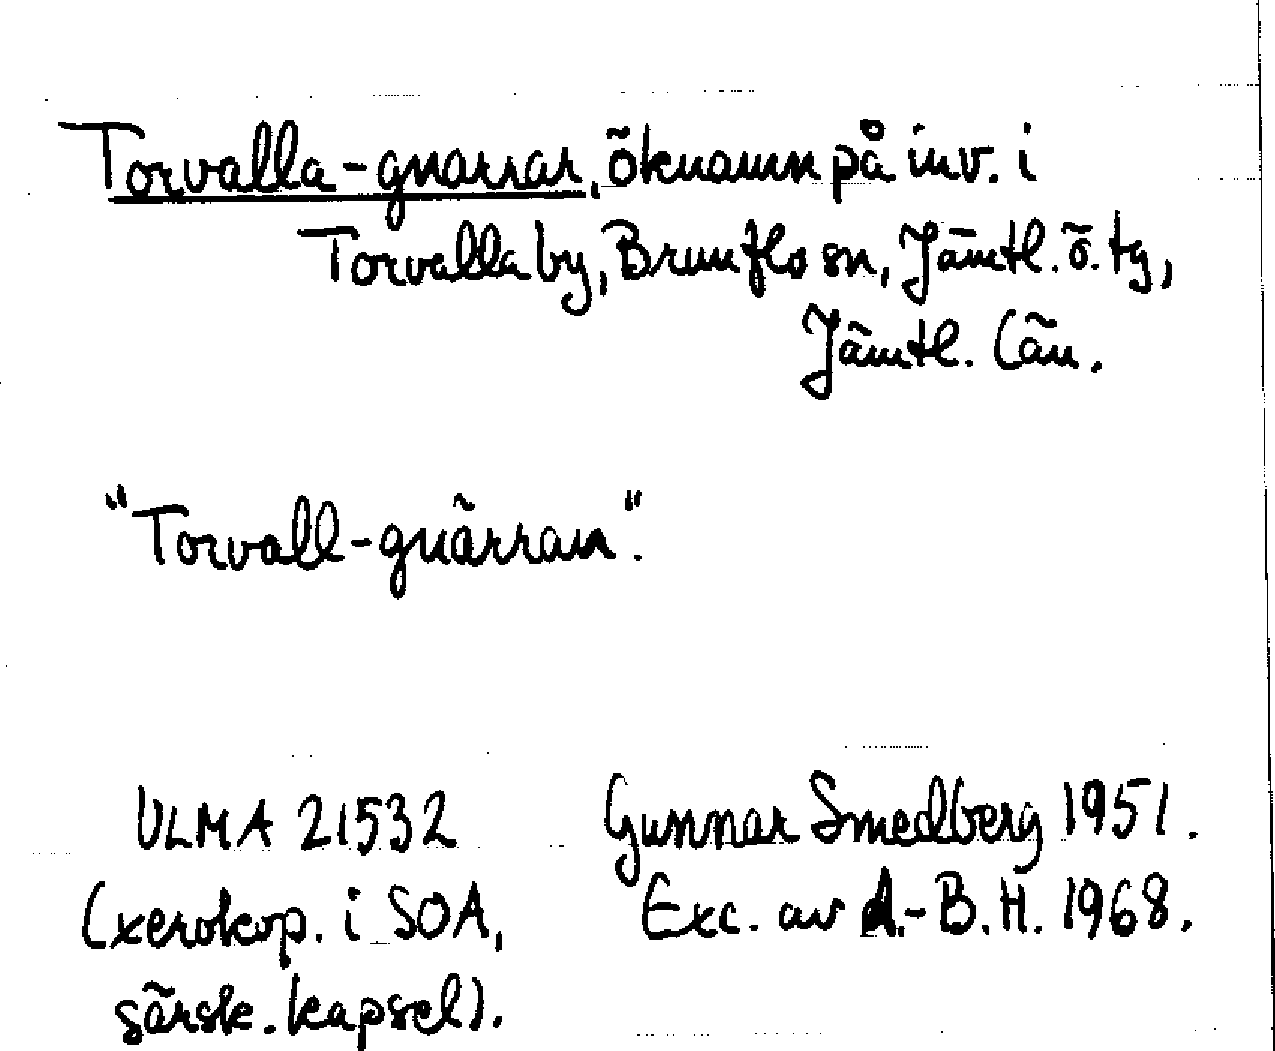 Torvalla-gnarrar, öknamn på inv. i
Torvalla by, Brunflo sn, Jämtl. ö. tg,
Jämtl. län.
"Torvall-gnärran".
ULMA 21532
(xerokop. i SOA,
särsk. kapsel).
Gunnar Smedberg 1951.
Exc. av A.-B.H. 1968.